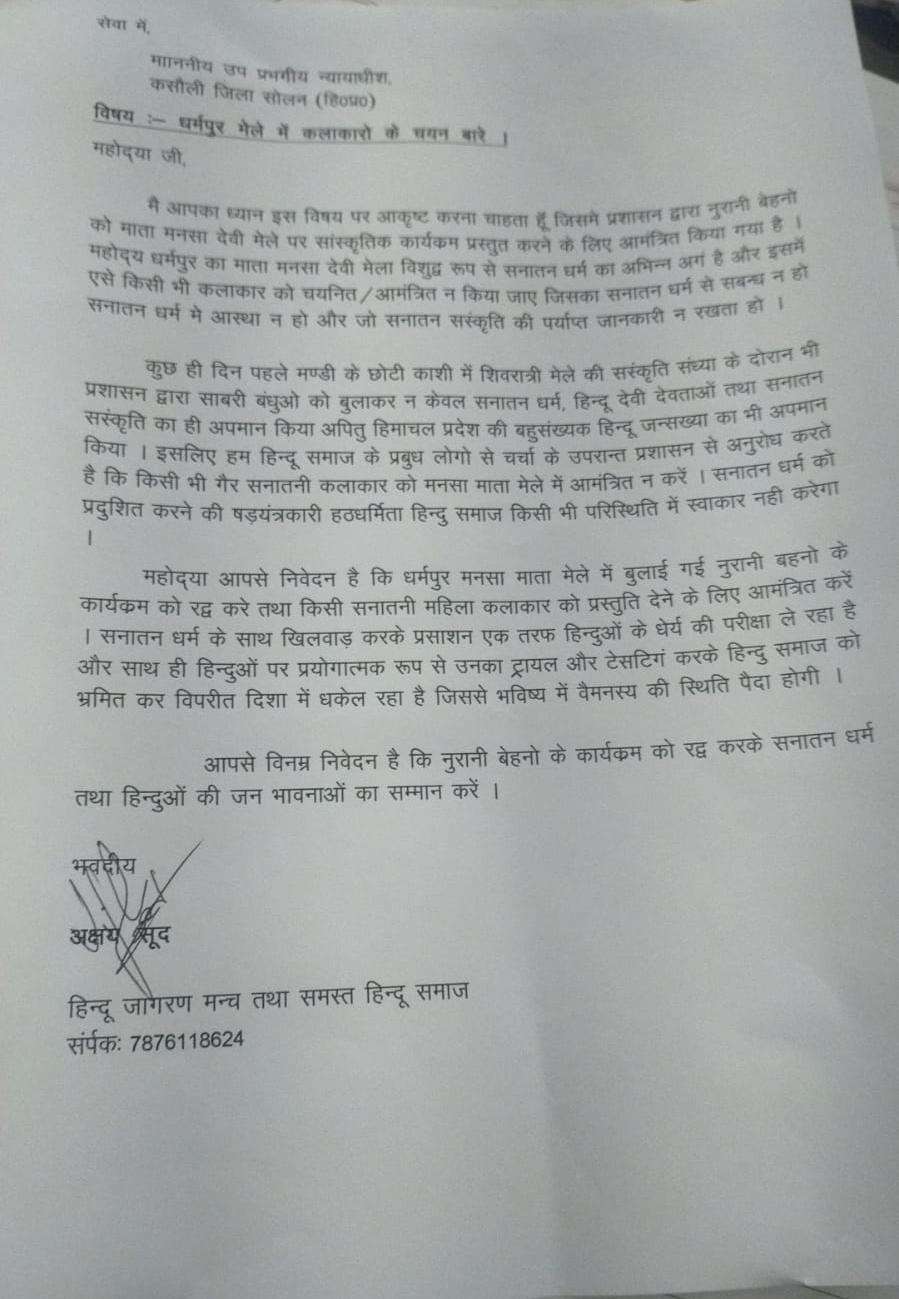 सेवा में,
मााननीय उप प्रभगीय न्यायाधीश,
कसौली जिला सोलन (हि०प्र०)
विषय :– धर्मपुर मेले में कलाकारो के चयन बारे ।
महोद्या जी,
मै आपका ध्यान इस विषय पर आकृष्ट करना चाहता हूँ जिसमे प्रशासन द्वारा नुरानी बेहनो
को माता मनसा देवी मेले पर सांस्कृतिक कार्यकम प्रस्तुत करने के लिए आमंत्रित किया गया है ।
महोद्य धर्मपुर का माता मनसा देवी मेला विशुद्व रूप से सनातन धर्म का अभिन्न अगं है और इसमें
एसे किसी भी कलाकार को चयनित/आमंत्रित न किया जाए जिसका सनातन धर्म से सबन्ध न हो
सनातन धर्म मे आस्था न हो और जो सनातन सस्ंकृति की पर्याप्त जानकारी न रखता हो ।
कुछ ही दिन पहले मण्डी के छोटी काशी में शिवरात्री मेले की सस्ंकृति संध्या के दोरान भी
प्रशासन द्वारा साबरी बंधुओ को बुलाकर न केवल सनातन धर्म, हिन्दू देवी देवताओं तथा सनातन
सस्ंकृति का ही अपमान किया अपितु हिमाचल प्रदेश की बहुसंख्यक हिन्दू जन्सख्या का भी अपमान
किया । इसलिए हम हिन्दू समाज के प्रबुध लोगो से चर्चा के उपरान्त प्रशासन से अनुरोध करते
है कि किसी भी गैर सनातनी कलाकार को मनसा माता मेले में आमंत्रित न करें । सनातन धर्म को
प्रदुशित करने की षड़यंत्रकारी हठधर्मिता हिन्दु समाज किसी भी परिस्थिति में स्वाकार नही करेगा
।
महोद्या आपसे निवेदन है कि धर्मपुर मनसा माता मेले में बुलाई गई नुरानी बहनो के
कार्यकम को रद्व करे तथा किसी सनातनी महिला कलाकार को प्रस्तुति देने के लिए आमंत्रित करें
। सनातन धर्म के साथ खिलवाड़ करके प्रसाशन एक तरफ हिन्दुओं के धेर्य की परीक्षा ले रहा है
और साथ ही हिन्दुओं पर प्रयोगात्मक रूप से उनका ट्रायल और टेसटिगं करके हिन्दु समाज को
भ्रमित कर विपरीत दिशा में धकेल रहा है जिससे भविष्य में वैमनस्य की स्थिति पैदा होगी ।
आपसे विनम्र निवेदन है कि नुरानी बेहनो के कार्यकम को रद्व करके सनातन धर्म
तथा हिन्दुओं की जन भावनाओं का सम्मान करें ।
भवदीय
अक्षय सूद
हिन्दू जागरण मन्च तथा समस्त हिन्दू समाज
संर्पकः 7876118624